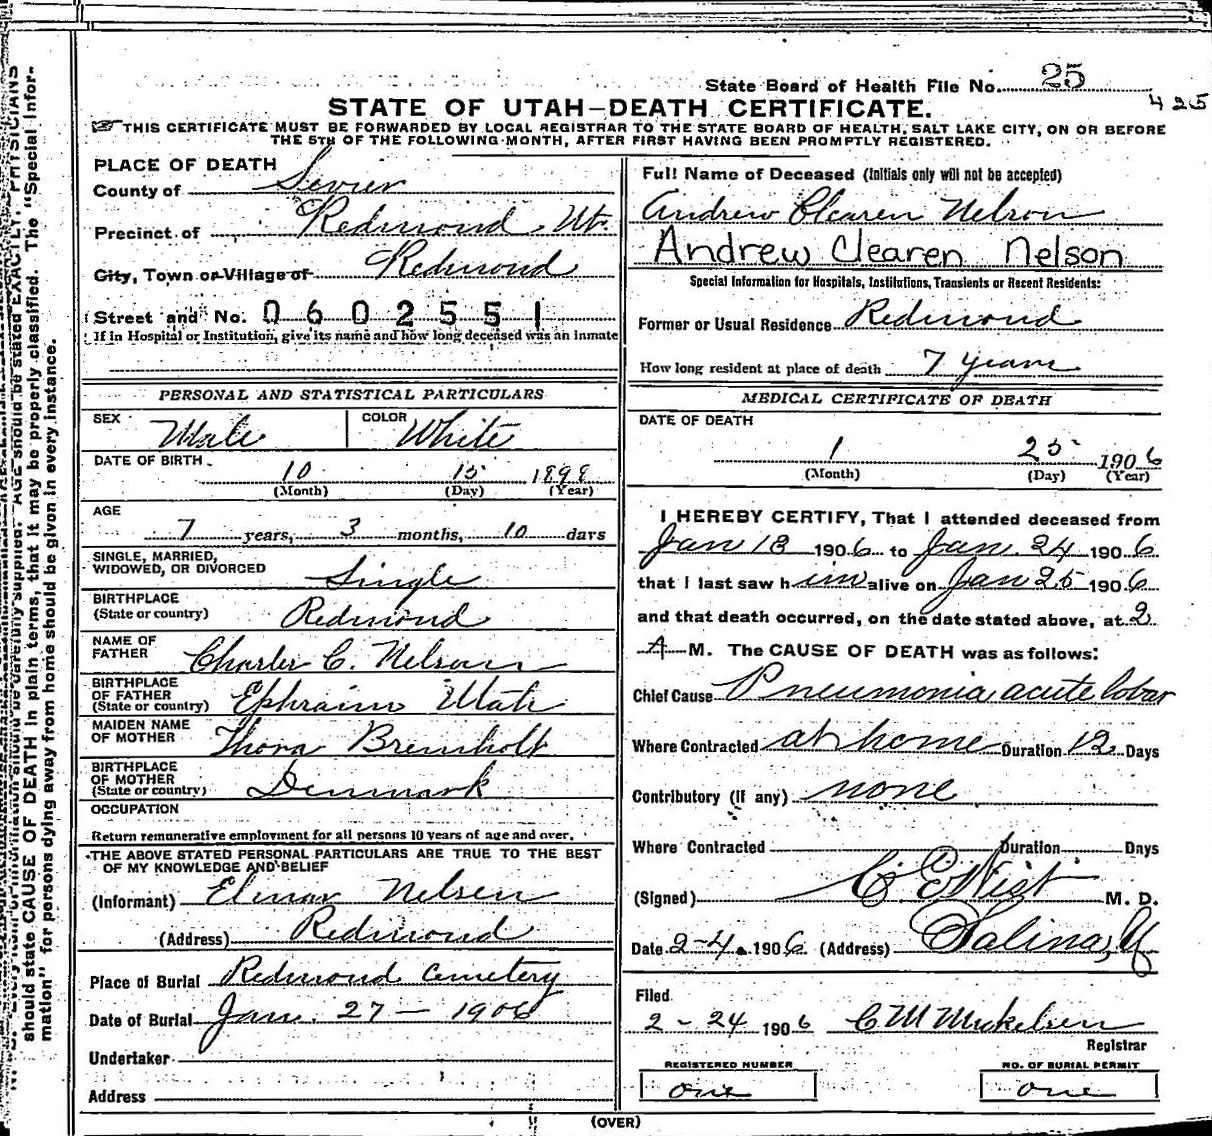 State Board of Health File No. 25
425
STATE OF UTAH—DEATH CERTIFICATE.
THIS CERTIFICATE MUST BE FORWARDED BY LOCAL REGISTRAR TO THE STATE BOARD OF HEALTH, SALT LAKE CITY, ON OR BEFORE
THE 5TH OF THE FOLLOWING MONTH, AFTER FIRST HAVING BEEN PROMPTLY REGISTERED.
PLACE OF DEATH
County of Sevier
Precinct of Redmond Ut.
City, Town or Village of Redmond
Street and No. 0602551
If in Hospital or Institution, give its name and how long deceased was an inmate
PERSONAL AND STATISTICAL PARTICULARS
SEX Male COLOR White
DATE OF BIRTH
10 15 1898
(Month) (Day) (Year)
AGE
7 years, 3 months, 10 days
SINGLE, MARRIED,
WIDOWED, OR DIVORCED Single
BIRTHPLACE
(State or country) Redmond
NAME OF
FATHER Charles C. Nelson
BIRTHPLACE
OF FATHER
(State or country) Ephraim Utah
MAIDEN NAME
OF MOTHER Thora Bremholt
BIRTHPLACE
OF MOTHER
(State or country) Denmark
OCCUPATION
Return remunerative employment for all persons 10 years of age and over.
THE ABOVE STATED PERSONAL PARTICULARS ARE TRUE TO THE BEST
OF MY KNOWLEDGE AND BELIEF
(Informant) Elmer Nelsen
(Address) Redmond
Place of Burial Redmond Cemetery
Date of Burial Jan. 27 — 1906
Undertaker
Address
Full Name of Deceased (Initials only will not be accepted)
Andrew Clearen Nelson
Andrew Clearen Nelson
Special Information for Hospitals, Institutions, Transients or Recent Residents:
Former or Usual Residence Redmond
How long resident at place of death 7 years
MEDICAL CERTIFICATE OF DEATH
DATE OF DEATH
1 25 1906
(Month) (Day) (Year)
I HEREBY CERTIFY, That I attended deceased from
Jan 18 1906 to Jan. 24 1906
that I last saw him alive on Jan 25 1906
and that death occurred, on the date stated above, at 2
A M. The CAUSE OF DEATH was as follows:
Chief Cause Pneumonia acute lobar
Where Contracted at home Duration 12 Days
Contributory (if any) none
Where Contracted Duration Days
(Signed) C E West M. D.
Date 2-4 1906 (Address) Salina, Ut
Filed
2-24 1906 C M Mickelsen
Registrar
REGISTERED NUMBER
one
NO. OF BURIAL PERMIT
one
(OVER)
should state CAUSE OF DEATH in plain terms, that it may be properly classified. The "Special Infor-
mation" for persons dying away from home should be given in every instance.